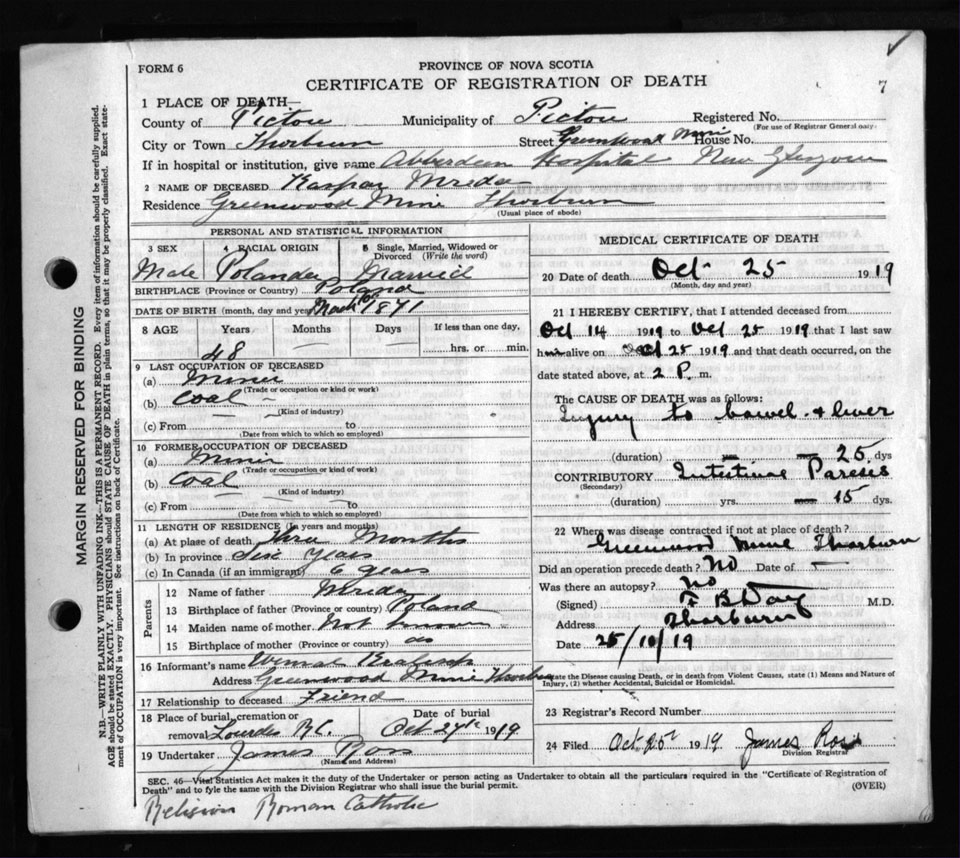 7
FORM 6
PROVINCE OF NOVA SCOTIA
CERTIFICATE OF REGISTRATION OF DEATH
1 PLACE OF DEATH—
County of Pictou Municipality of Pictou Registered No.
(For use of Registrar General only)
City or Town Thorburn Street Greenwood Mine House No.
If in hospital or institution, give name Abberdeen Hospital New Glasgow
2 NAME OF DECEASED Kaspar Mreda
Residence Greenwood Mine Thorburn
(Usual place of abode)
PERSONAL AND STATISTICAL INFORMATION
3 SEX 4 RACIAL ORIGIN 5 Single, Married, Widowed or Divorced (Write the word)
Male Polander Married
BIRTHPLACE (Province or Country) Poland
DATE OF BIRTH (month, day and year) March 1871
8 AGE Years Months Days If less than one day,
48 — — hrs. or min.
9 LAST OCCUPATION OF DECEASED
(a) Miner
(Trade or occupation or kind or work)
(b) Coal
(Kind of industry)
(c) From to
(Date from which to which so employed)
10 FORMER OCCUPATION OF DECEASED
(a) Miner
(Trade or occupation or kind of work)
(b) Coal
(Kind of industry)
(c) From to
(Date from which to which so employed)
11 LENGTH OF RESIDENCE (In years and months)
(a) At place of death three Months
(b) In province Six Years
(c) In Canada (if an immigrant) 6 years
Parents
12 Name of father Mreda
13 Birthplace of father (Province or country) Poland
14 Maiden name of mother Not known
15 Birthplace of mother " do
16 Informant's name
Address Greenwood Mine Thorburn
17 Relationship to deceased Friend
18 Place of burial, cremation or removal Lourdes R.C. Date of burial Oct 27th 1919
19 Undertaker James Ross
(Name and Address)
MEDICAL CERTIFICATE OF DEATH
20 Date of death Oct 25 1919
(Month, day and year)
21 I HEREBY CERTIFY, that I attended deceased from
Oct 14 1919 to Oct 25 1919 that I last saw
him alive on Oct 25 1919 and that death occurred, on the
date stated above, at 2 P. m.
The CAUSE OF DEATH was as follows:
Injury to bowel & liver
(duration) — — 25 dys
CONTRIBUTORY Intestine Pareses
(Secondary)
(duration) yrs. mos 15 dys.
22 Where was disease contracted if not at place of death?
Greenwood Mine Thorburn
Did an operation precede death? No Date of —
Was there an autopsy? No
(Signed) F B Day M.D.
Address Thorburn
Date 25/10/19
State the Disease causing Death, or in death from Violent Causes, state (1) Means and Nature of
Injury, (2) whether Accidental, Suicidal or Homicidal.
23 Registrar's Record Number
24 Filed Oct 25th 1919 James Ross
Division Registrar
SEC. 46—Vital Statistics Act makes it the duty of the Undertaker or person acting as Undertaker to obtain all the particulars required in the "Certificate of Registration of
Death" and to fyle the same with the Division Registrar who shall issue the burial permit. (OVER)
Religion Roman Catholic
MARGIN RESERVED FOR BINDING
N.B.—WRITE PLAINLY WITH UNFADING INK—THIS IS A PERMANENT RECORD. Every item of information should be carefully supplied.
AGE should be stated EXACTLY. PHYSICIANS should STATE CAUSE OF DEATH in plain terms, so that it may be properly classified. Exact state-
ment of OCCUPATION is very important. See instructions on back of Certificate.